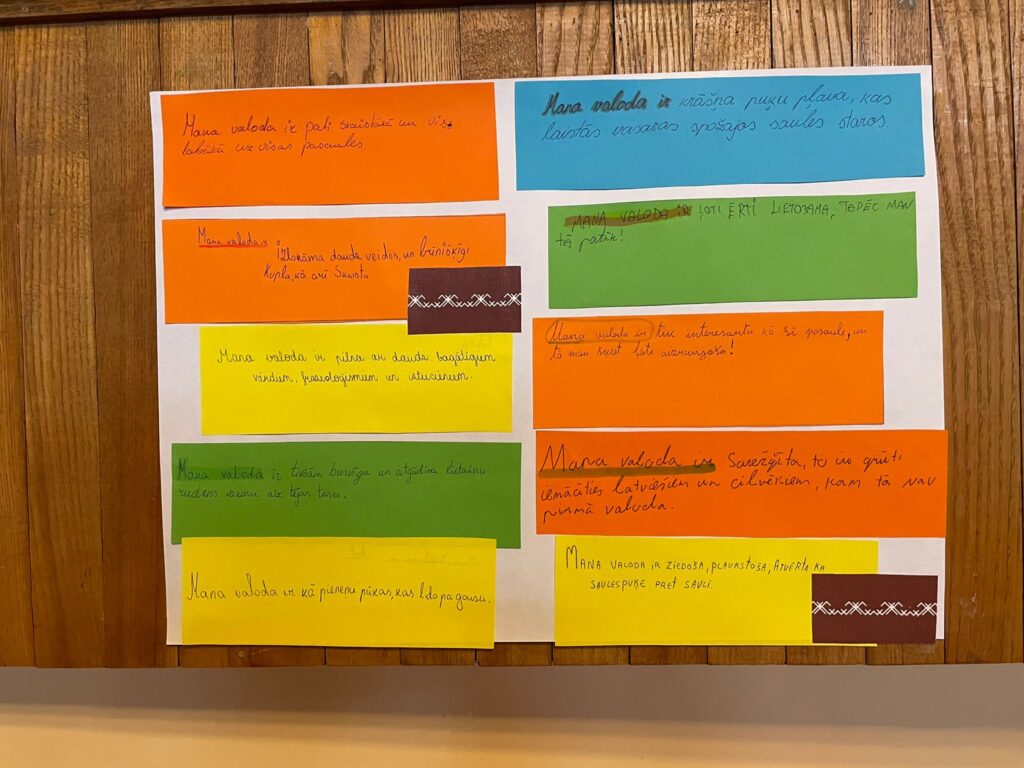 Mana valoda ir pati skaistākā un vis
labākā uz visas pasaules.
Mana valoda ir
izlokāma daudz veidos, un brīnišķīgi
Kupla, kā arī Skaista.
Mana valoda ir pilna ar daudz bagātīgum
vārdiem, frazeoloģismiem un izteicieniem.
Mana valoda ir tiešām burvīga un atgādina lietainu
rudens vakaru aiz tējas tases.
Mana valoda ir kā pieneņu pūkas, kas lido pa gaisu.
Mana valoda ir krāšna puķu pļava, kas
laistās vasaras spožajos saules staros.
MANA VALODA IR ĻOTI ĒRTI LIETOJAMA, TĀPĒC MAN
tā patīk!
Mana valoda ir tik interesanta kā šī pasaule, un
tā man šķiet ļoti aizraujoša!
Mana valoda ir Sarežģīta, to ir grūti
iemācīties latviešiem un cilvēkiem, kam tā nav
pirmā valoda.
MANA VALODA IR ZIEDOŠA, PLAUKSTOŠA, ATVĒRTA KĀ
SAULESPUĶE PRET SAULI.